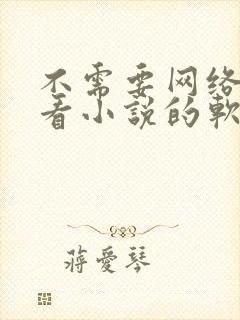 不需要网络
看小说的软
蒋爱琴